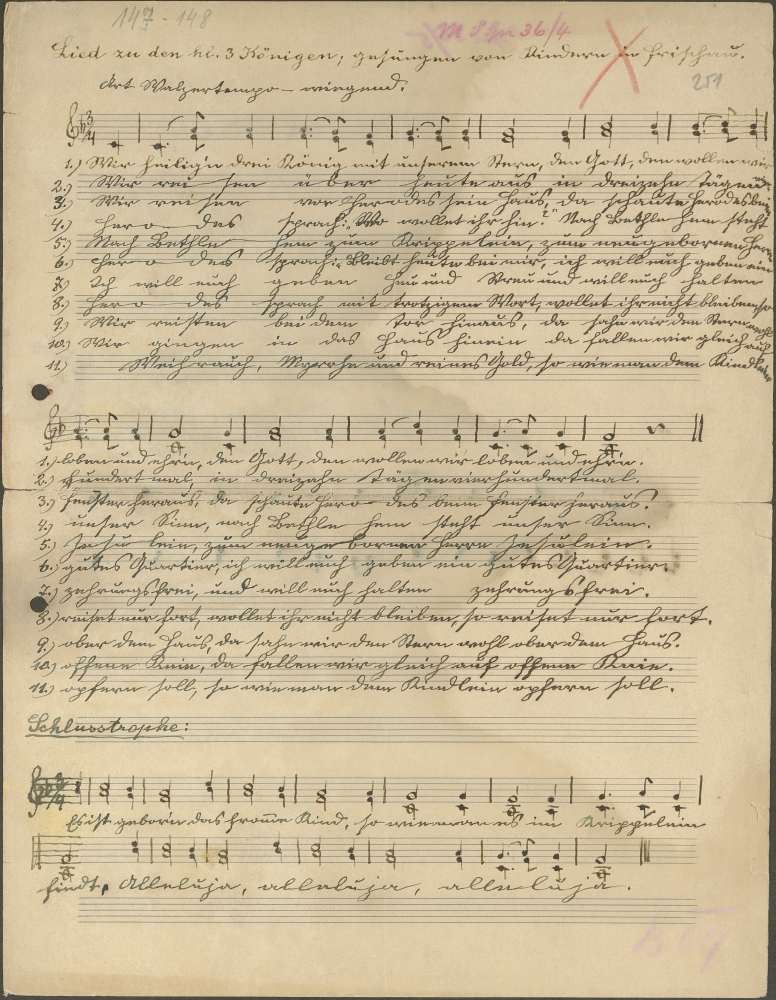 147 - 148
M 8 Gr 36/4
Lied zu den hl. 3 Königen; gesungen von Kindern in Frischau.
251
Art Walzertempo – wiegend.
1.) Wir heilig'n drei König mit unserem Stern, den Gott, den wollen wir
2.) Wir rei sen über heute aus in dreizehn Tägen
3.) Wir reisen vor Herodes sein Haus, da schaute Herodes beim
4.) Hero des sprach: "Wo wollet ihr hin?" Nach Bethle hem steht
5.) Nach Bethle hem zum Krippelein, zum neugebornen Herrn
6.) Hero des sprach: Bleibt heute bei mir, ich will euch geben ein
7.) Ich will euch geben Heu und Streu und will euch halten
8.) Hero des sprach mit trotzigem Wort, wollet ihr nicht bleiben, so
9.) Wir reisten bei dem Tor hinaus, da sahn wir den Stern wohl
10.) Wir gingen in das Haus hinein da fallen wir gleich auf
11.) Weihrauch, Myrrhe und reines Gold, so wie man dem Kindlein
1.) loben und ehr'n, den Gott, den wollen wir loben und ehr'n.
2.) hundert mal, in dreizehn Tägen vierhundertmal.
3.) Fenster heraus, da schaute Hero des beim Fenster heraus.
4.) unser Sinn, nach Bethle hem steht unser Sinn.
5.) Jesu lein, zum neuge bornen Herrn Jesulein.
6.) gutes Quartier, ich will euch geben ein gutes Quartier.
7.) zehrungsfrei, und will euch halten zehrungsfrei.
8.) reiset nur fort, wollet ihr nicht bleiben, so reiset nur fort.
9.) ober dem Haus, da sahn wir den Stern wohl ober dem Haus.
10.) offene Knie, da fallen wir gleich auf offene Knie.
11.) opfern soll, so wie man dem Kindlein opfern soll.
Schlusstrophe:
Es ist gebor'n das fromme Kind, so wie man es im Krippelein
findt, Alleluja, alleluja, alleluja.